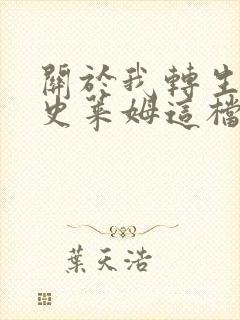 關於我轉生
史萊姆這檔
葉天浩